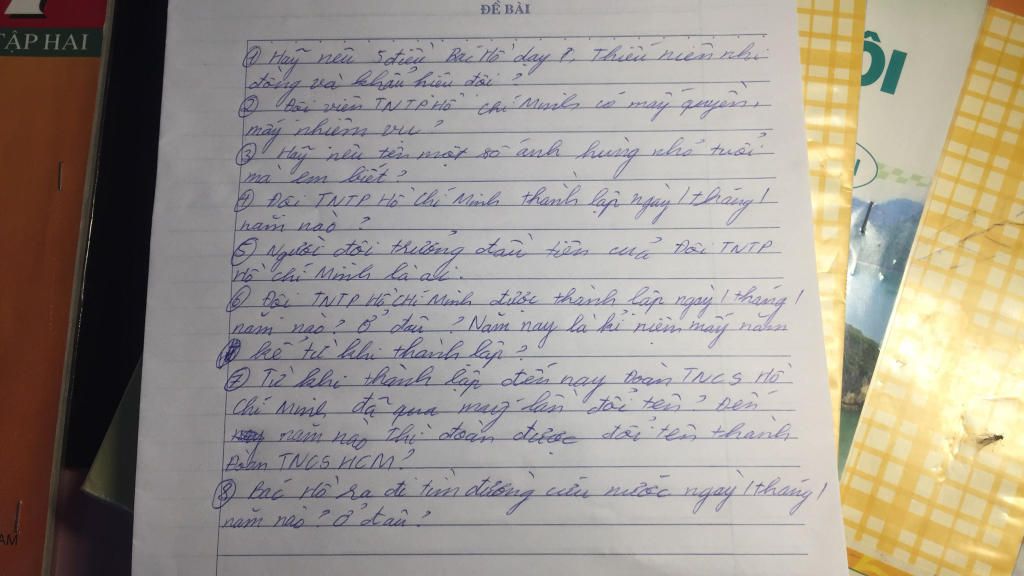 TẬP HAI
ĐỀ BÀI
ÔI
① Hãy nêu 5 điều Bác Hồ dạy, Thiếu niên nhi
đồng và khẩu hiệu đội?
② Đội viên TNTP Hồ Chí Minh có mấy quyền,
mấy nhiệm vụ?
③ Hãy nêu tên một số anh hùng nhỏ tuổi
mà em biết?
④ Đội TNTP Hồ Chí Minh thành lập ngày/tháng/
năm nào?
⑤ Người đội trưởng đầu tiên của Đội TNTP
Hồ Chí Minh là ai.
⑥ Đội TNTP Hồ Chí Minh được thành lập ngày/tháng/
năm nào? Ở đâu? Năm nay là kỉ niệm mấy năm
kể từ khi thành lập?
⑦ Từ khi thành lập đến nay Đoàn TNCS Hồ
Chí Minh đã qua mấy lần đổi tên? Đến
năm nào thì đoàn được đổi tên thành
Đoàn TNCS HCM?
⑧ Bác Hồ ra đi tìm đường cứu nước ngày/tháng/
năm nào? Ở đâu?
AM